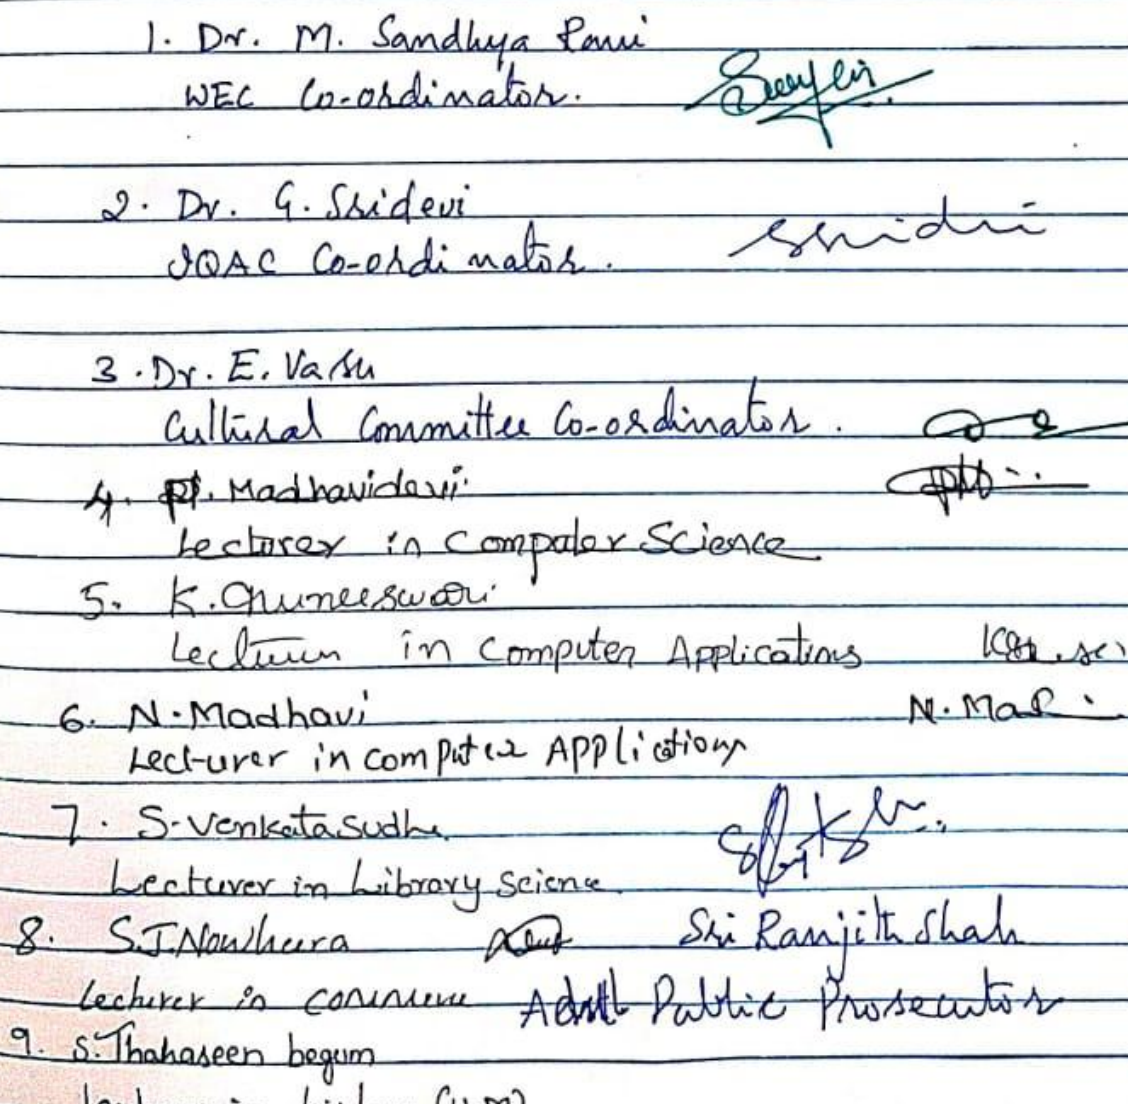 1. Dr. M. Sandhya Rani
WEC Co-ordinator.
2. Dr. G. Sridevi
IQAC Co-ordinator.
3. Dr. E. Vasu
Cultural Committee Co-ordinator.
4. P. Madhavidevi
Lecturer in Computer Science
5. K.
Lecturer in Computer Applications
6. N. Madhavi
Lecturer in computer Applications
7. S. Venkata Sudha
Lecturer in Library science.
8. S.J. Nowheera Sri Ranjith Shah
Lecturer in commerce Addl Public Prosecutor
9. S. Thahaseen begum